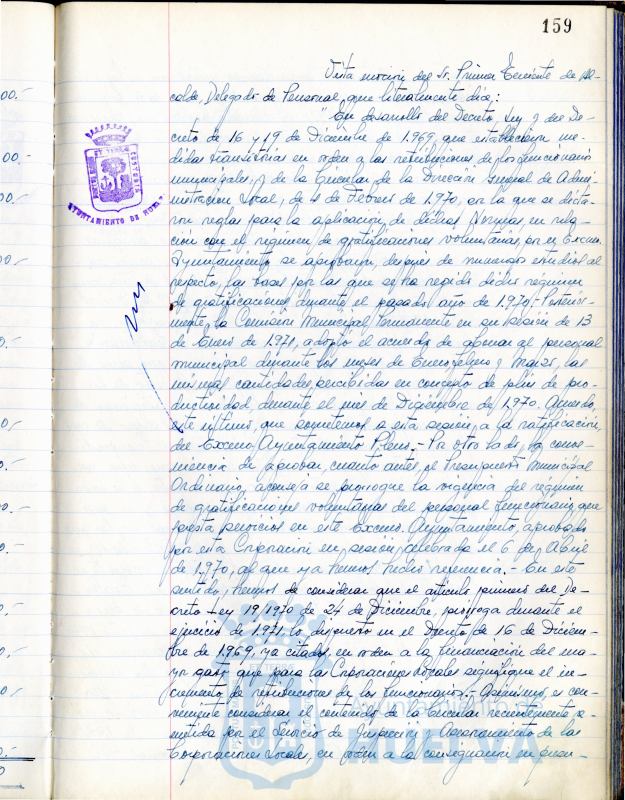 159
Vista moción del Sr. Primer Teniente de Al-
calde, Delegado de Personal, que literalmente dice:
"En desarrollo del Decreto Ley y del De-
creto de 16 y 19 de Diciembre de 1.969, que establecieron me-
didas transitorias en orden a las retribuciones de los funcionarios
municipales, y de la Circular de la Dirección General de Admi-
nistración Local, de 4 de Febrero de 1.970, en la que se dicta-
ron reglas para la aplicación de dichas Normas, en rela-
ción con el régimen de gratificaciones voluntarias, por el Excmo.
Ayuntamiento se aprobaron, después de numerosos estudios al
respecto, las bases por las que se ha regido dicho régimen
de gratificaciones durante el pasado año de 1.970.- Posterior-
mente, la Comisión Municipal Permanente en su sesión de 13
de Enero de 1.971, adoptó el acuerdo de abonar al personal
municipal durante los meses de Enero, febrero y Marzo, las
mismas cantidades percibidas en concepto de plus de pro-
ductividad, durante el mes de Diciembre de 1.970. Acuerdo,
este último, que sometemos a esta sesión, a la ratificación
del Excmo. Ayuntamiento Pleno.- Por otro lado, la conve-
niencia de aprobar, cuanto antes, el Presupuesto Municipal
Ordinario, aconseja se prorrogue la vigencia del régimen
de gratificaciones voluntarias del personal funcionario que
presta servicios en este Excmo. Ayuntamiento, aprobado
por esta Corporación en sesión celebrada el 6 de Abril
de 1.970, al que ya hemos hecho referencia.- En este
sentido, hemos de considerar que el artículo primero del De-
creto-Ley 19/1970 de 24 de Diciembre, prórroga durante el
ejercicio de 1.971, lo dispuesto en el Decreto de 16 de Diciem-
bre de 1.969, ya citado, en orden a la financiación del ma-
yor gasto que para las Corporaciones Locales signifique el in-
cremento de retribuciones de los funcionarios.- Asimismo, es con-
veniente considerar el contenido de la Circular recientemente re-
mitida por el Servicio de Inspección y Asesoramiento de las
Corporaciones Locales, en orden a la consignación en presu-
AYUNTAMIENTO DE HUELVA
Ayuntamiento de
HUELVA